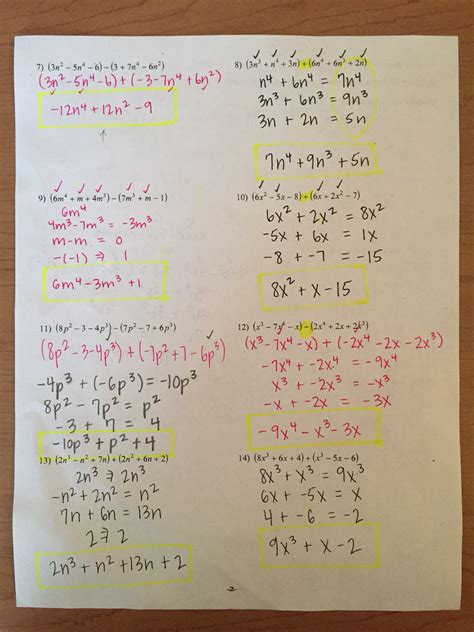 7) (3n² − 5n⁴ − 6) − (3 + 7n⁴ − 6n²)
(3n² − 5n⁴ − 6) + (−3 − 7n⁴ + 6n²)
−12n⁴ + 12n² − 9
8) (3n³ + n⁴ + 3n) + (6n⁴ + 6n³ + 2n)
n⁴ + 6n⁴ = 7n⁴
3n³ + 6n³ = 9n³
3n + 2n = 5n
7n⁴ + 9n³ + 5n
9) (6m⁴ + m + 4m³) − (7m³ + m − 1)
6m⁴
4m³ − 7m³ = −3m³
m − m = 0
−(−1) ⇒ 1
6m⁴ − 3m³ + 1
10) (6x² − 5x − 8) + (6x + 2x² − 7)
6x² + 2x² = 8x²
−5x + 6x = 1x
−8 + −7 = −15
8x² + x − 15
11) (8p² − 3 − 4p³) − (7p² − 7 + 6p³)
(8p² − 3 − 4p³) + (−7p² + 7 − 6p³)
−4p³ + (−6p³) = −10p³
8p² − 7p² = p²
−3 + 7 = 4
−10p³ + p² + 4
12) (x³ − 7x⁴ − x) − (2x⁴ + 2x + 2x³)
(x³ − 7x⁴ − x) + (−2x⁴ − 2x − 2x³)
−7x⁴ + −2x⁴ = −9x⁴
x³ + −2x³ = −x³
−x + −2x = −3x
−9x⁴ − x³ − 3x
13) (2n³ − n² + 7n) + (2n² + 6n + 2)
2n³ ⇒ 2n³
−n² + 2n² = n²
7n + 6n = 13n
2 ⇒ 2
2n³ + n² + 13n + 2
14) (8x³ + 6x + 4) + (x³ − 5x − 6)
8x³ + x³ = 9x³
6x + −5x = x
4 + −6 = −2
9x³ + x − 2
-2-